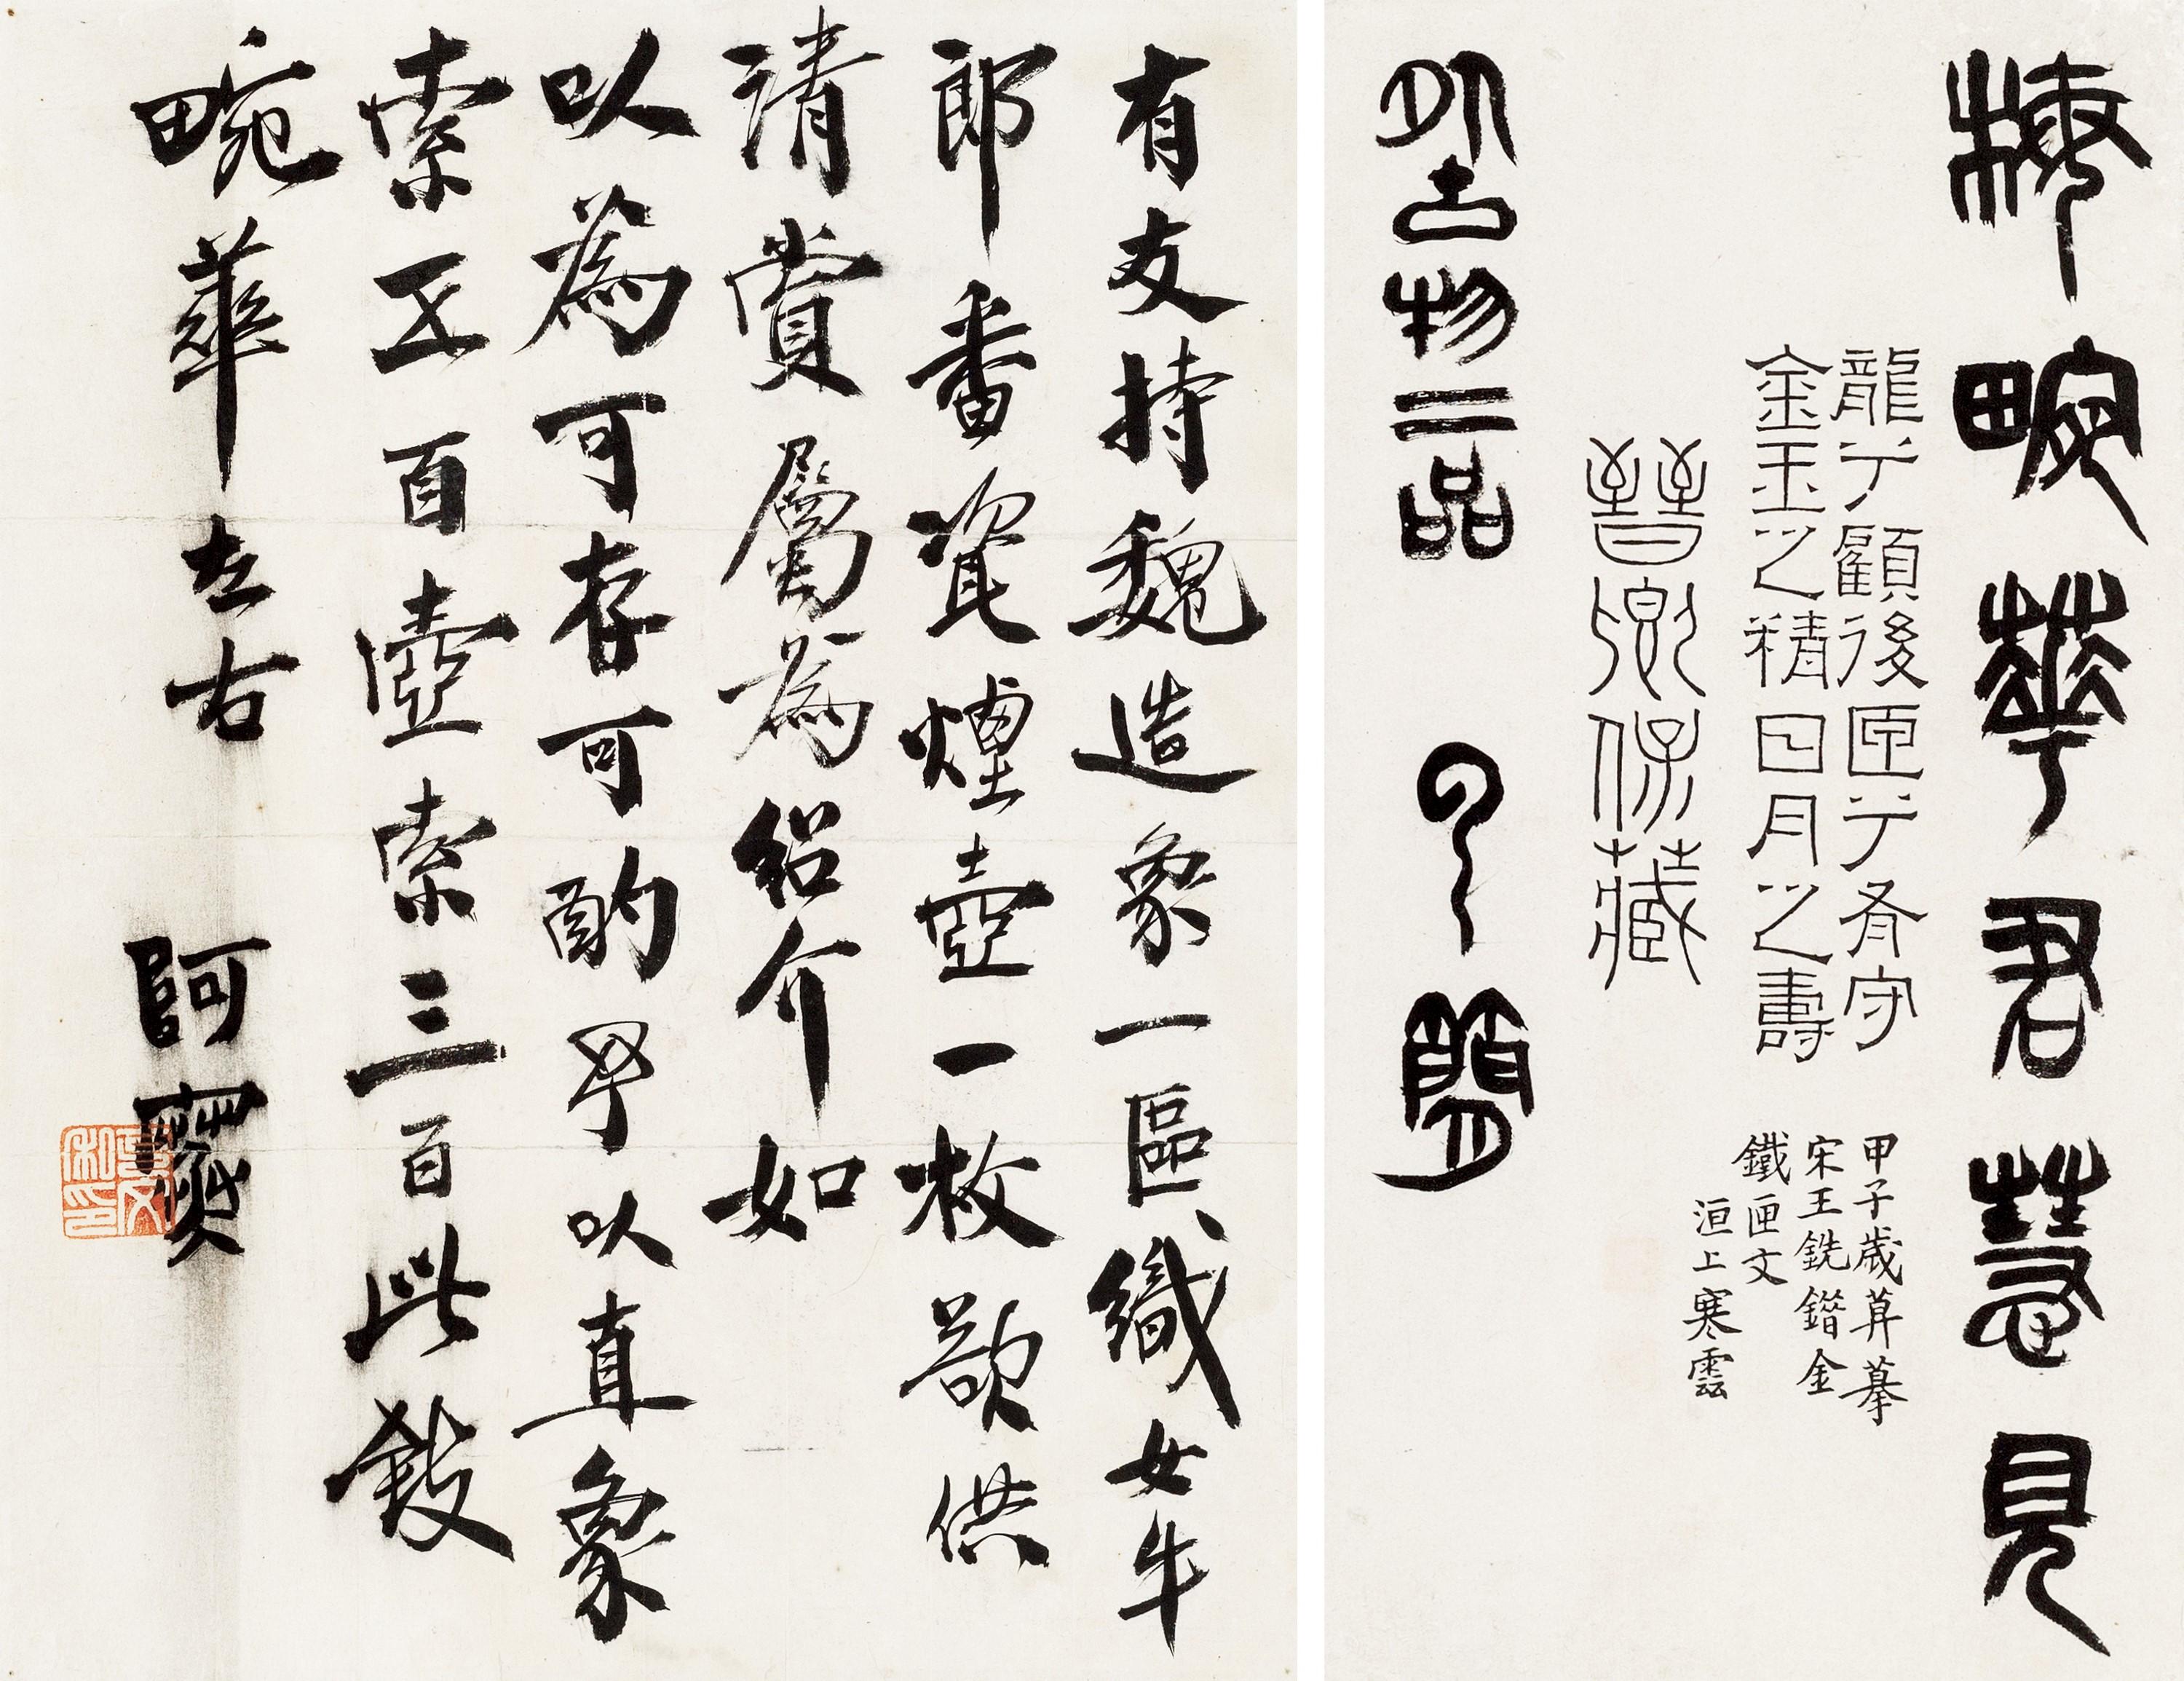 梅畹華君慧見
龍兮顧後匜兮脊守
金玉之精日月之壽
晉卿保藏
甲子歲摹
宋王銑鐕金
鐵匜文
洹上寒雲
古物二品
有友持魏造象一區織女牛
郎番瓷煙壺一枚欲供
清賞屬為紹介如
以為可存可酌予以直象
索五百壺索三百此敘
畹華左右 阿
克文私印